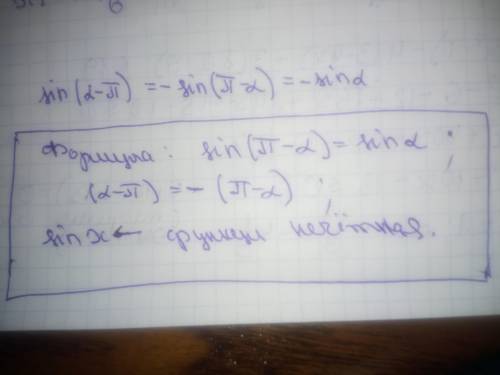 sin(α-π) = -sin(π-α) = -sinα
Формула: sin(π-α) = sinα ;
(α-π) = -(π-α) ;
sin x ← функция нечётная.